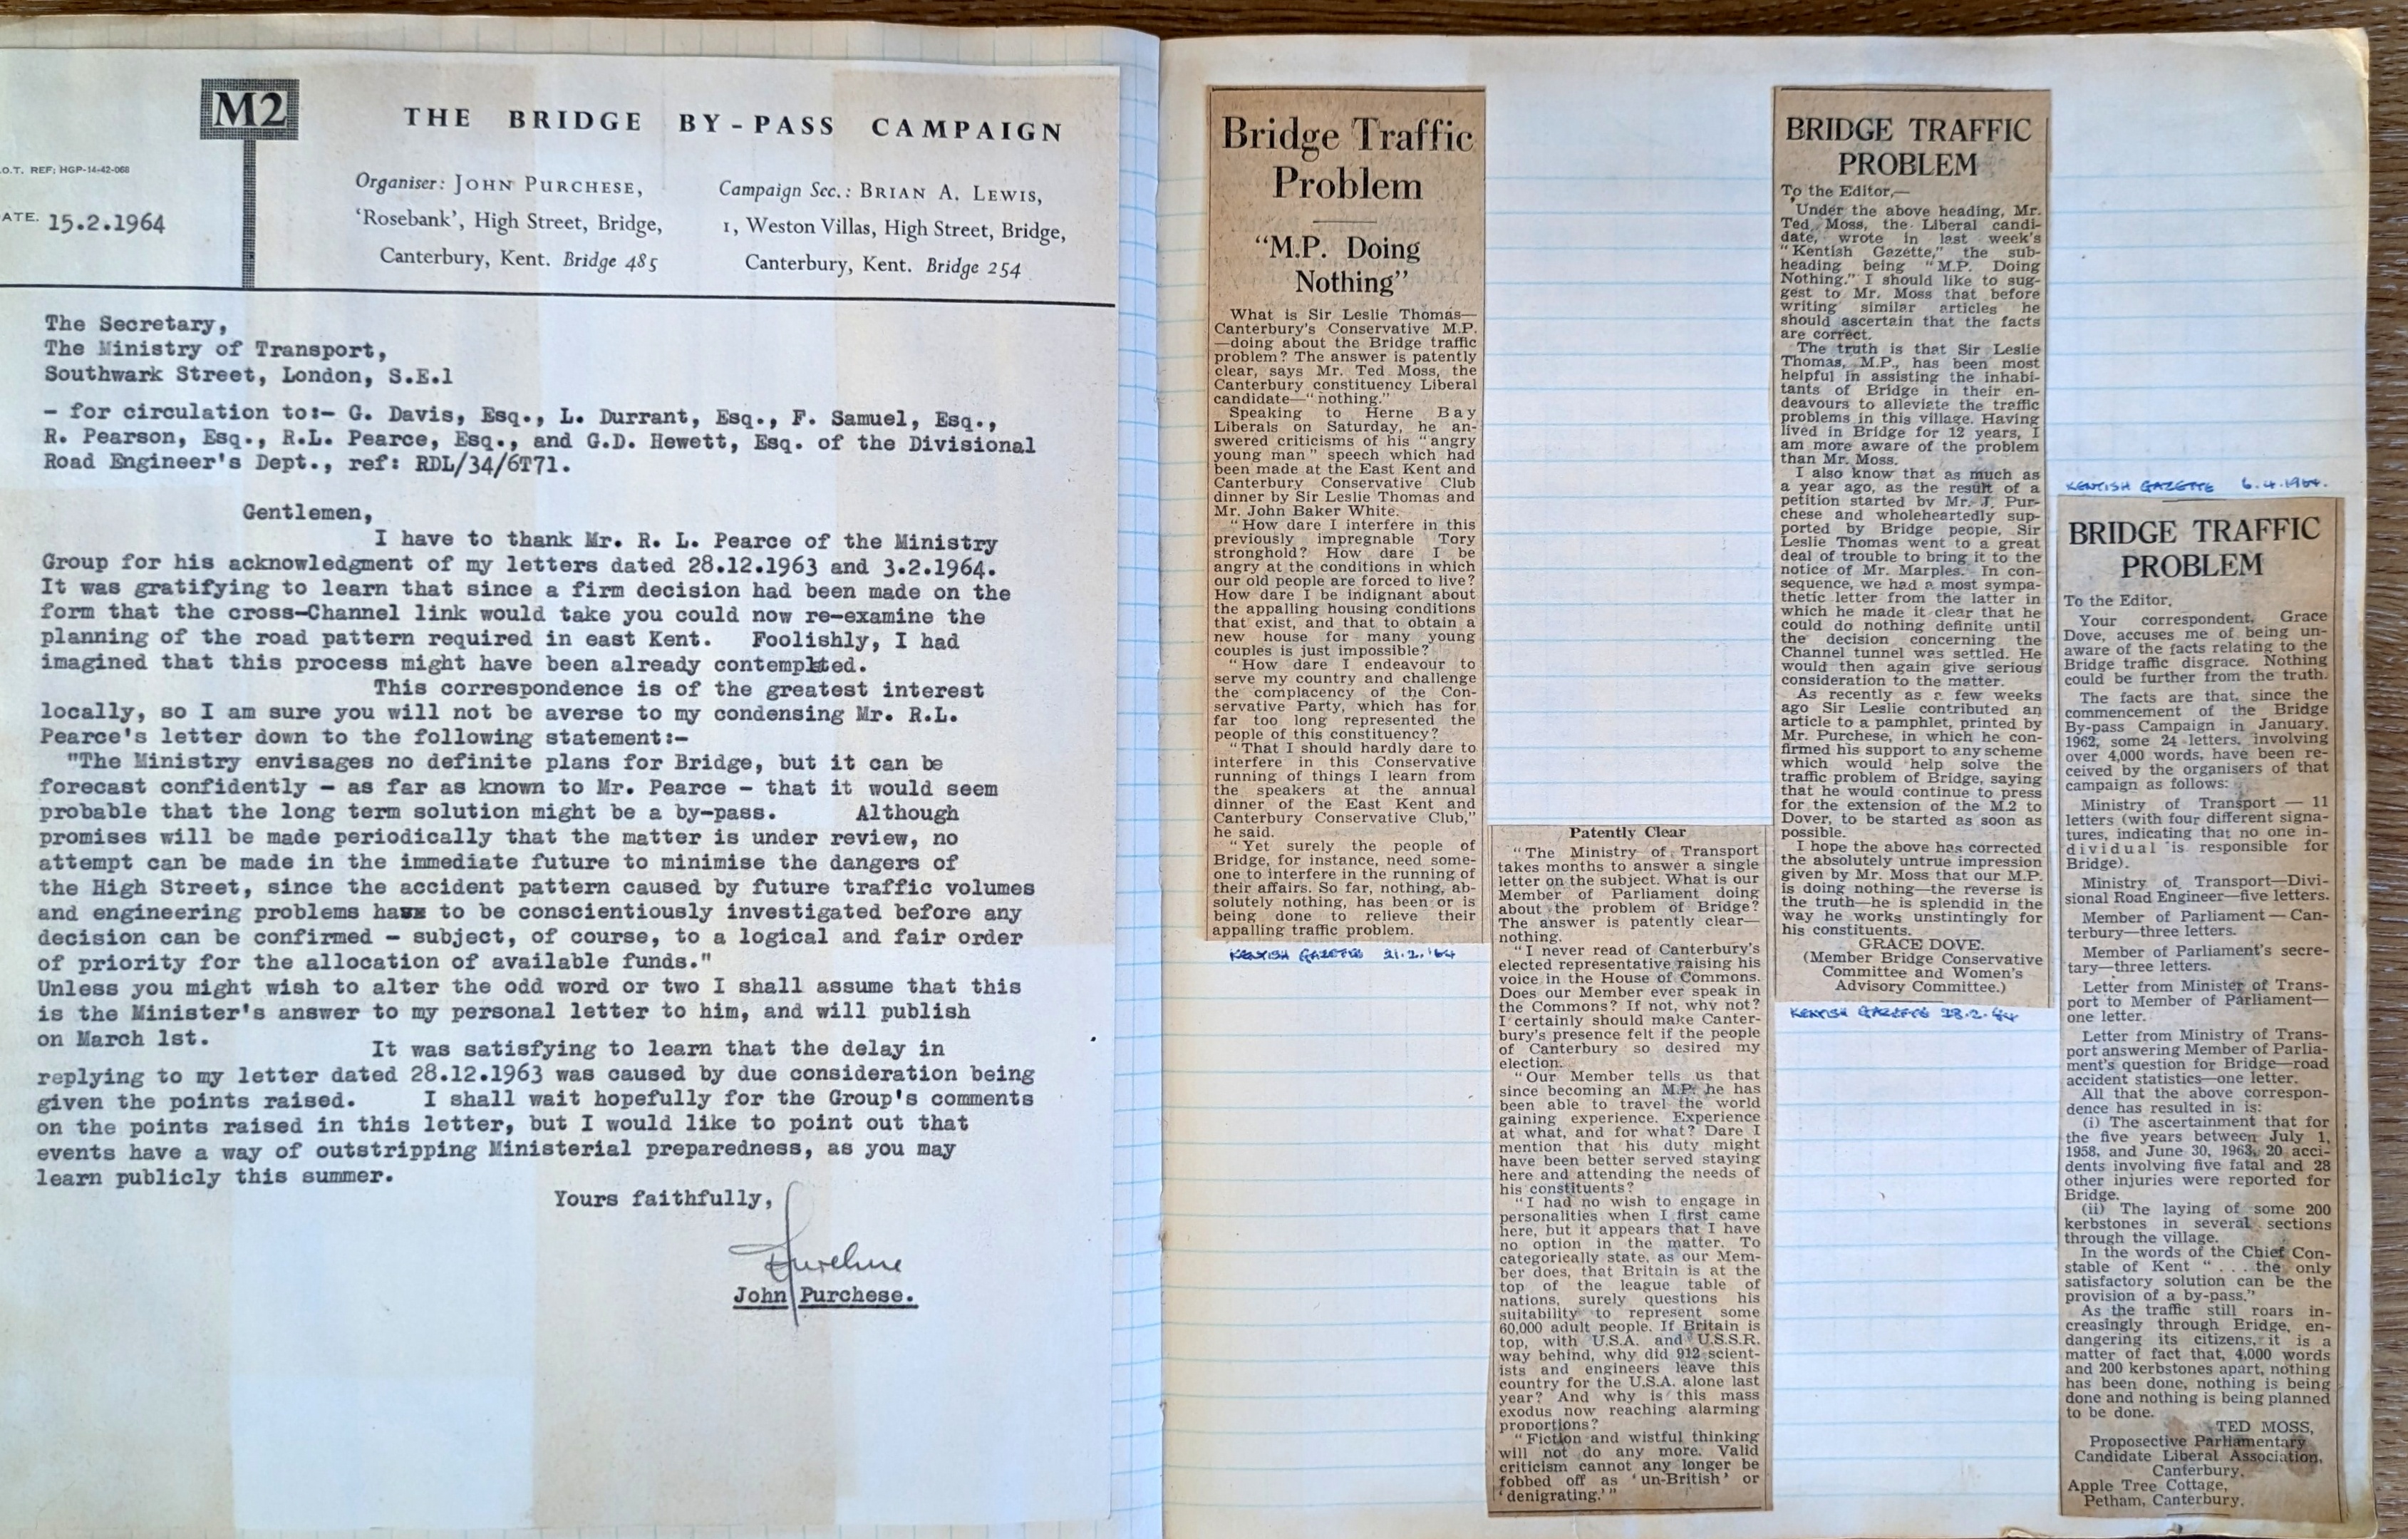 M2
THE BRIDGE BY-PASS CAMPAIGN
O.T. REF; HGP-14-42-068
ATE. 15.2.1964
Organiser: JOHN PURCHESE,
'Rosebank', High Street, Bridge,
Canterbury, Kent. Bridge 485
Campaign Sec.: BRIAN A. LEWIS,
1, Weston Villas, High Street, Bridge,
Canterbury, Kent. Bridge 254
The Secretary,
The Ministry of Transport,
Southwark Street, London, S.E.1
- for circulation to:- G. Davis, Esq., L. Durrant, Esq., F. Samuel, Esq.,
R. Pearson, Esq., R.L. Pearce, Esq., and G.D. Hewett, Esq. of the Divisional
Road Engineer's Dept., ref: RDL/34/6T71.
Gentlemen,
I have to thank Mr. R. L. Pearce of the Ministry
Group for his acknowledgment of my letters dated 28.12.1963 and 3.2.1964.
It was gratifying to learn that since a firm decision had been made on the
form that the cross-Channel link would take you could now re-examine the
planning of the road pattern required in east Kent. Foolishly, I had
imagined that this process might have been already contemplated.
This correspondence is of the greatest interest
locally, so I am sure you will not be averse to my condensing Mr. R.L.
Pearce's letter down to the following statement:-
"The Ministry envisages no definite plans for Bridge, but it can be
forecast confidently - as far as known to Mr. Pearce - that it would seem
probable that the long term solution might be a by-pass. Although
promises will be made periodically that the matter is under review, no
attempt can be made in the immediate future to minimise the dangers of
the High Street, since the accident pattern caused by future traffic volumes
and engineering problems have to be conscientiously investigated before any
decision can be confirmed - subject, of course, to a logical and fair order
of priority for the allocation of available funds."
Unless you might wish to alter the odd word or two I shall assume that this
is the Minister's answer to my personal letter to him, and will publish
on March 1st.
It was satisfying to learn that the delay in
replying to my letter dated 28.12.1963 was caused by due consideration being
given the points raised. I shall wait hopefully for the Group's comments
on the points raised in this letter, but I would like to point out that
events have a way of outstripping Ministerial preparedness, as you may
learn publicly this summer.
Yours faithfully,
John Purchese.
Bridge Traffic
Problem
"M.P. Doing
Nothing"
What is Sir Leslie Thomas—
Canterbury's Conservative M.P.
—doing about the Bridge traffic
problem? The answer is patently
clear, says Mr. Ted Moss, the
Canterbury constituency Liberal
candidate—"nothing."
Speaking to Herne Bay
Liberals on Saturday, he an-
swered criticisms of his "angry
young man" speech which had
been made at the East Kent and
Canterbury Conservative Club
dinner by Sir Leslie Thomas and
Mr. John Baker White.
"How dare I interfere in this
previously impregnable Tory
stronghold? How dare I be
angry at the conditions in which
our old people are forced to live?
How dare I be indignant about
the appalling housing conditions
that exist, and that to obtain a
new house for many young
couples is just impossible?
"How dare I endeavour to
serve my country and challenge
the complacency of the Con-
servative Party, which has for
far too long represented the
people of this constituency?
"That I should hardly dare to
interfere in this Conservative
running of things I learn from
the speakers at the annual
dinner of the East Kent and
Canterbury Conservative Club,"
he said.
"Yet surely the people of
Bridge, for instance, need some-
one to interfere in the running of
their affairs. So far, nothing, ab-
solutely nothing, has been or is
being done to relieve their
appalling traffic problem.
KENTISH GAZETTE 21.2.'64
Patently Clear
"The Ministry of Transport
takes months to answer a single
letter on the subject. What is our
Member of Parliament doing
about the problem of Bridge?
The answer is patently clear—
nothing.
"I never read of Canterbury's
elected representative raising his
voice in the House of Commons.
Does our Member ever speak in
the Commons? If not, why not?
I certainly should make Canter-
bury's presence felt if the people
of Canterbury so desired my
election.
"Our Member tells us that
since becoming an M.P. he has
been able to travel the world
gaining experience. Experience
at what, and for what? Dare I
mention that his duty might
have been better served staying
here and attending the needs of
his constituents?
"I had no wish to engage in
personalities when I first came
here, but it appears that I have
no option in the matter. To
categorically state, as our Mem-
ber does, that Britain is at the
top of the league table of
nations, surely questions his
suitability to represent some
60,000 adult people. If Britain is
top, with U.S.A. and U.S.S.R.
way behind, why did 912 scient-
ists and engineers leave this
country for the U.S.A. alone last
year? And why is this mass
exodus now reaching alarming
proportions?
"Fiction and wistful thinking
will not do any more. Valid
criticism cannot any longer be
fobbed off as 'un-British' or
'denigrating.'"
BRIDGE TRAFFIC
PROBLEM
To the Editor,—
Under the above heading, Mr.
Ted Moss, the Liberal candi-
date, wrote in last week's
"Kentish Gazette," the sub-
heading being "M.P. Doing
Nothing." I should like to sug-
gest to Mr. Moss that before
writing similar articles he
should ascertain that the facts
are correct.
The truth is that Sir Leslie
Thomas, M.P., has been most
helpful in assisting the inhabi-
tants of Bridge in their en-
deavours to alleviate the traffic
problems in this village. Having
lived in Bridge for 12 years, I
am more aware of the problem
than Mr. Moss.
I also know that as much as
a year ago, as the result of a
petition started by Mr. J. Pur-
chese and wholeheartedly sup-
ported by Bridge people, Sir
Leslie Thomas went to a great
deal of trouble to bring it to the
notice of Mr. Marples. In con-
sequence, we had a most sympa-
thetic letter from the latter in
which he made it clear that he
could do nothing definite until
the decision concerning the
Channel tunnel was settled. He
would then again give serious
consideration to the matter.
As recently as a few weeks
ago Sir Leslie contributed an
article to a pamphlet, printed by
Mr. Purchese, in which he con-
firmed his support to any scheme
which would help solve the
traffic problem of Bridge, saying
that he would continue to press
for the extension of the M.2 to
Dover, to be started as soon as
possible.
I hope the above has corrected
the absolutely untrue impression
given by Mr. Moss that our M.P.
is doing nothing—the reverse is
the truth—he is splendid in the
way he works unstintingly for
his constituents.
GRACE DOVE.
(Member Bridge Conservative
Committee and Women's
Advisory Committee.)
KENTISH GAZETTE 28.2.64
KENTISH GAZETTE 6.4.1964.
BRIDGE TRAFFIC
PROBLEM
To the Editor,
Your correspondent, Grace
Dove, accuses me of being un-
aware of the facts relating to the
Bridge traffic disgrace. Nothing
could be further from the truth.
The facts are that, since the
commencement of the Bridge
By-pass Campaign in January,
1962, some 24 letters, involving
over 4,000 words, have been re-
ceived by the organisers of that
campaign as follows:
Ministry of Transport — 11
letters (with four different signa-
tures, indicating that no one in-
dividual is responsible for
Bridge).
Ministry of Transport—Divi-
sional Road Engineer—five letters.
Member of Parliament — Can-
terbury—three letters.
Member of Parliament's secre-
tary—three letters.
Letter from Minister of Trans-
port to Member of Parliament—
one letter.
Letter from Ministry of Trans-
port answering Member of Parlia-
ment's question for Bridge—road
accident statistics—one letter.
All that the above correspon-
dence has resulted in is:
(i) The ascertainment that for
the five years between July 1,
1958, and June 30, 1963, 20 acci-
dents involving five fatal and 28
other injuries were reported for
Bridge.
(ii) The laying of some 200
kerbstones in several sections
through the village.
In the words of the Chief Con-
stable of Kent " . . . the only
satisfactory solution can be the
provision of a by-pass."
As the traffic still roars in-
creasingly through Bridge, en-
dangering its citizens, it is a
matter of fact that, 4,000 words
and 200 kerbstones apart, nothing
has been done, nothing is being
done and nothing is being planned
to be done.
TED MOSS,
Proposective Parliamentary
Candidate Liberal Association,
Canterbury.
Apple Tree Cottage,
Petham, Canterbury.